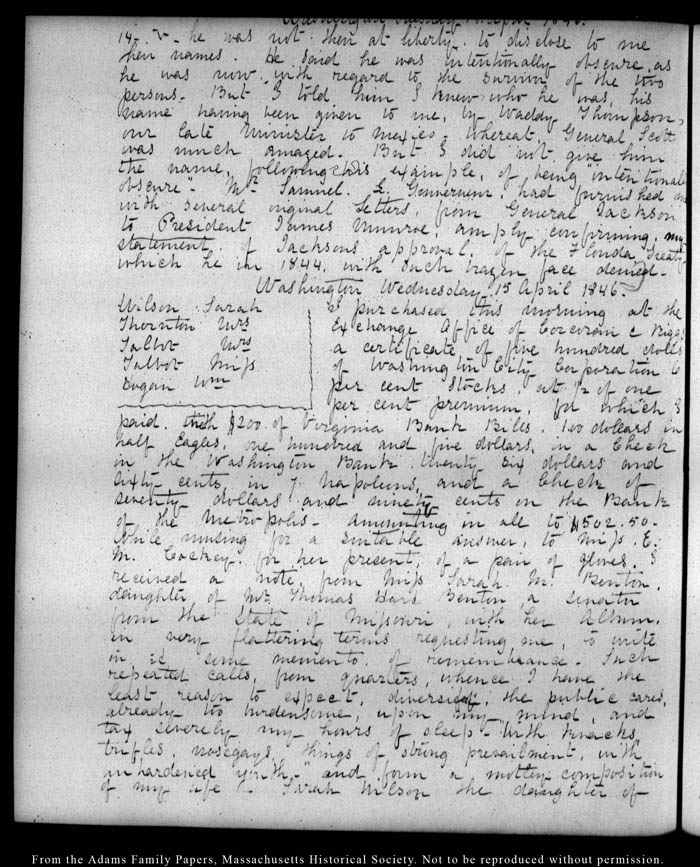 Washington Tuesday 14 April 1846.
14. V. he was not then at liberty to disclose to me
their names. He said he was intentionally obscure, as
he was now with regard to the survivor of the two
persons. But I told him I knew who he was, his
name having been given to me, by Waddy Thompson,
our late Minister to Mexico. whereat, General Scott
was much amazed. But I did not give him
the name, following his example, of being "intentionally
obscure". Mr Samuel. L. Gouverneur, had furnished me
with several original Letters, from General Jackson
to President James Munroe, amply confirming my
statement of Jacksons approval, of the Florida Treaty
which he in 1844. with such brazen face denied.
Washington Wednesday 15 April 1846.
Wilson Sarah
Thornton Mrs
Talbot Mrs
Talbot Miss
Dugan Wm
I purchased this morning at the
Exchange Office of Corcoran & Riggs
a certificate, of five hundred dolls
of Washington City Corporation 6
per cent Stocks, at 1/2 of one
per cent premium, for which I
paid. with $200. of Virginia Bank Bills. 100 dollars in
half Eagles, one hundred and five dollars, in a Check
in the Washington Bank. twenty six dollars and
sixty cents, in 7 Napoleons, and a Check of
seventy dollars and ninety cents on the Bank
of the Metropolis. amounting in all to $502.50.
While musing for a suitable answer, to Miss E.
M. Cockey. for her present, of a pair of gloves, I
received a note, from Miss Sarah M. Benton,
daughter of Mr Thomas Hart Benton a Senator
from the State of Missouri, with her Album.
in very flattering terms requesting me, to write
in it some memento of remembrance. Such
repeated calls, from quarters, whence I have the
least reason to expect, diversify, the public cares,
already too burdensome, upon my mind, and
tax severely my hours of sleep. With "knacks,
trifles, nosegays, things of strong prevailment, with
unhardened youth," and form a motley composition
of my life. Sarah Wilson the daughter of
From the Adams Family Papers, Massachusetts Historical Society. Not to be reproduced without permission.